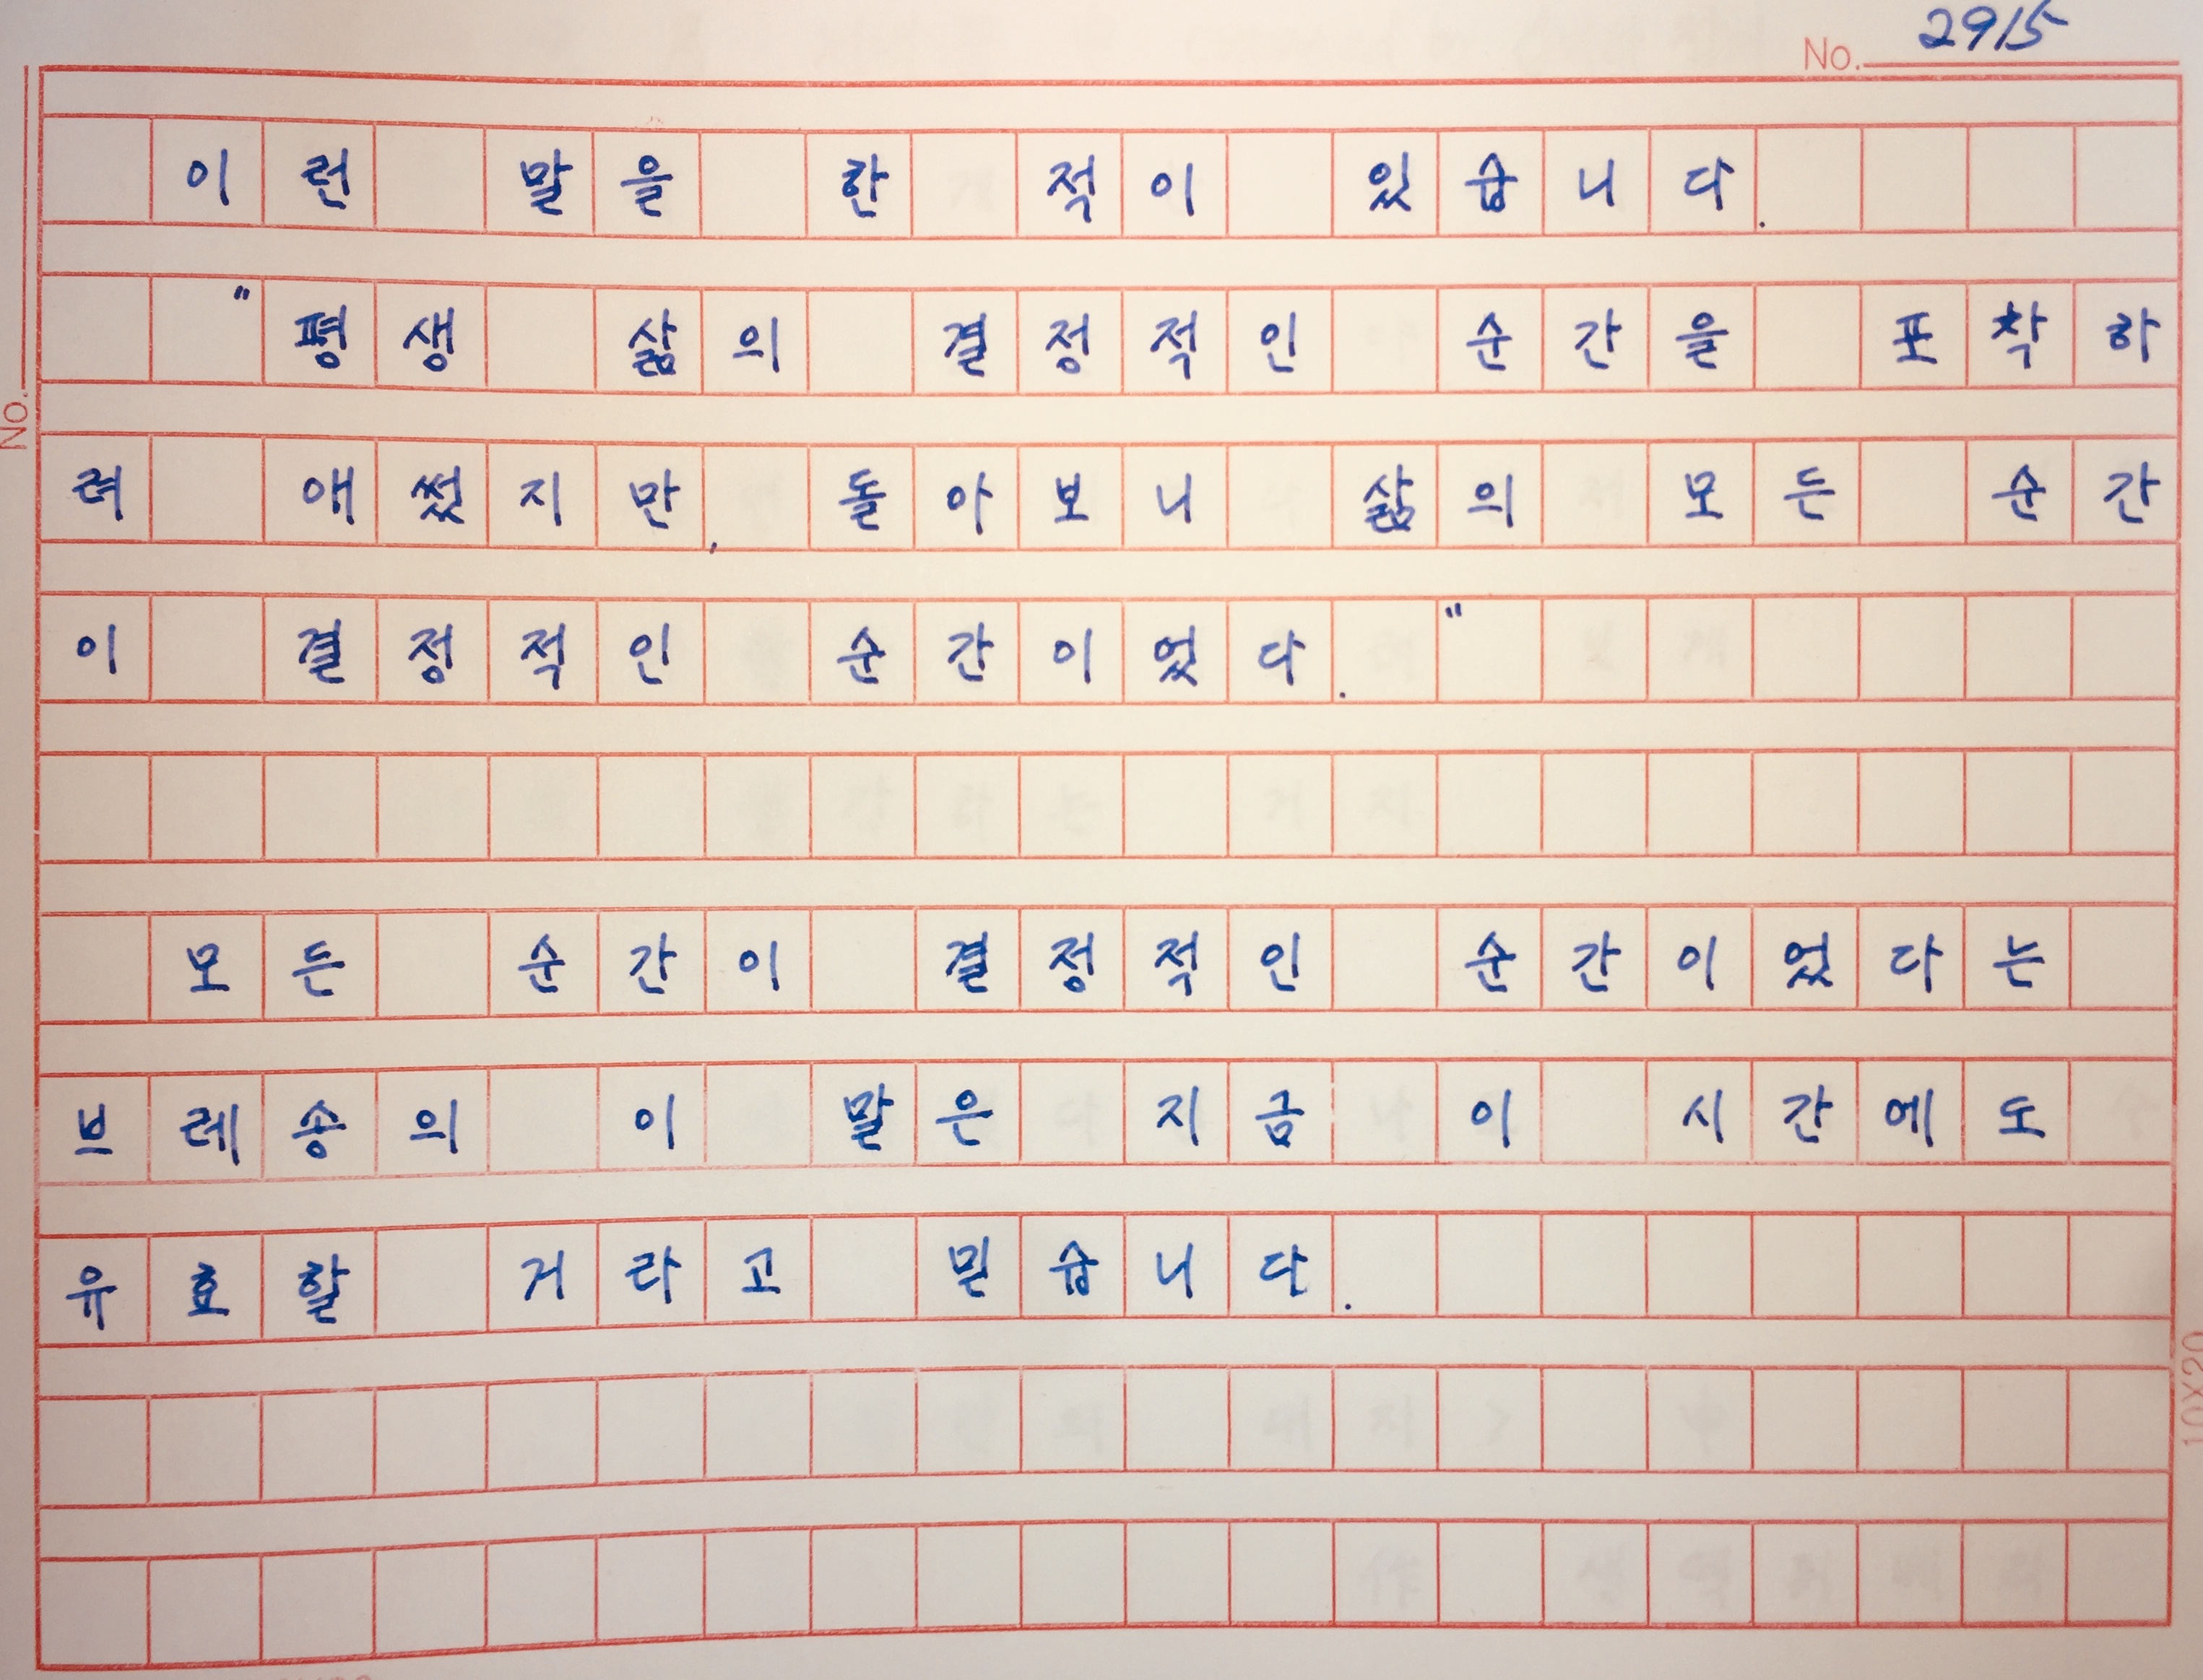 No. 2915
이런 말을 한 적이 있습니다.
"평생 삶의 결정적인 순간을 포착하
려 애썼지만, 돌아보니 삶의 모든 순간
이 결정적인 순간이었다."
모든 순간이 결정적인 순간이었다는
브레송의 이 말은 지금 이 시간에도
유효할 거라고 믿습니다.
No.
10X20